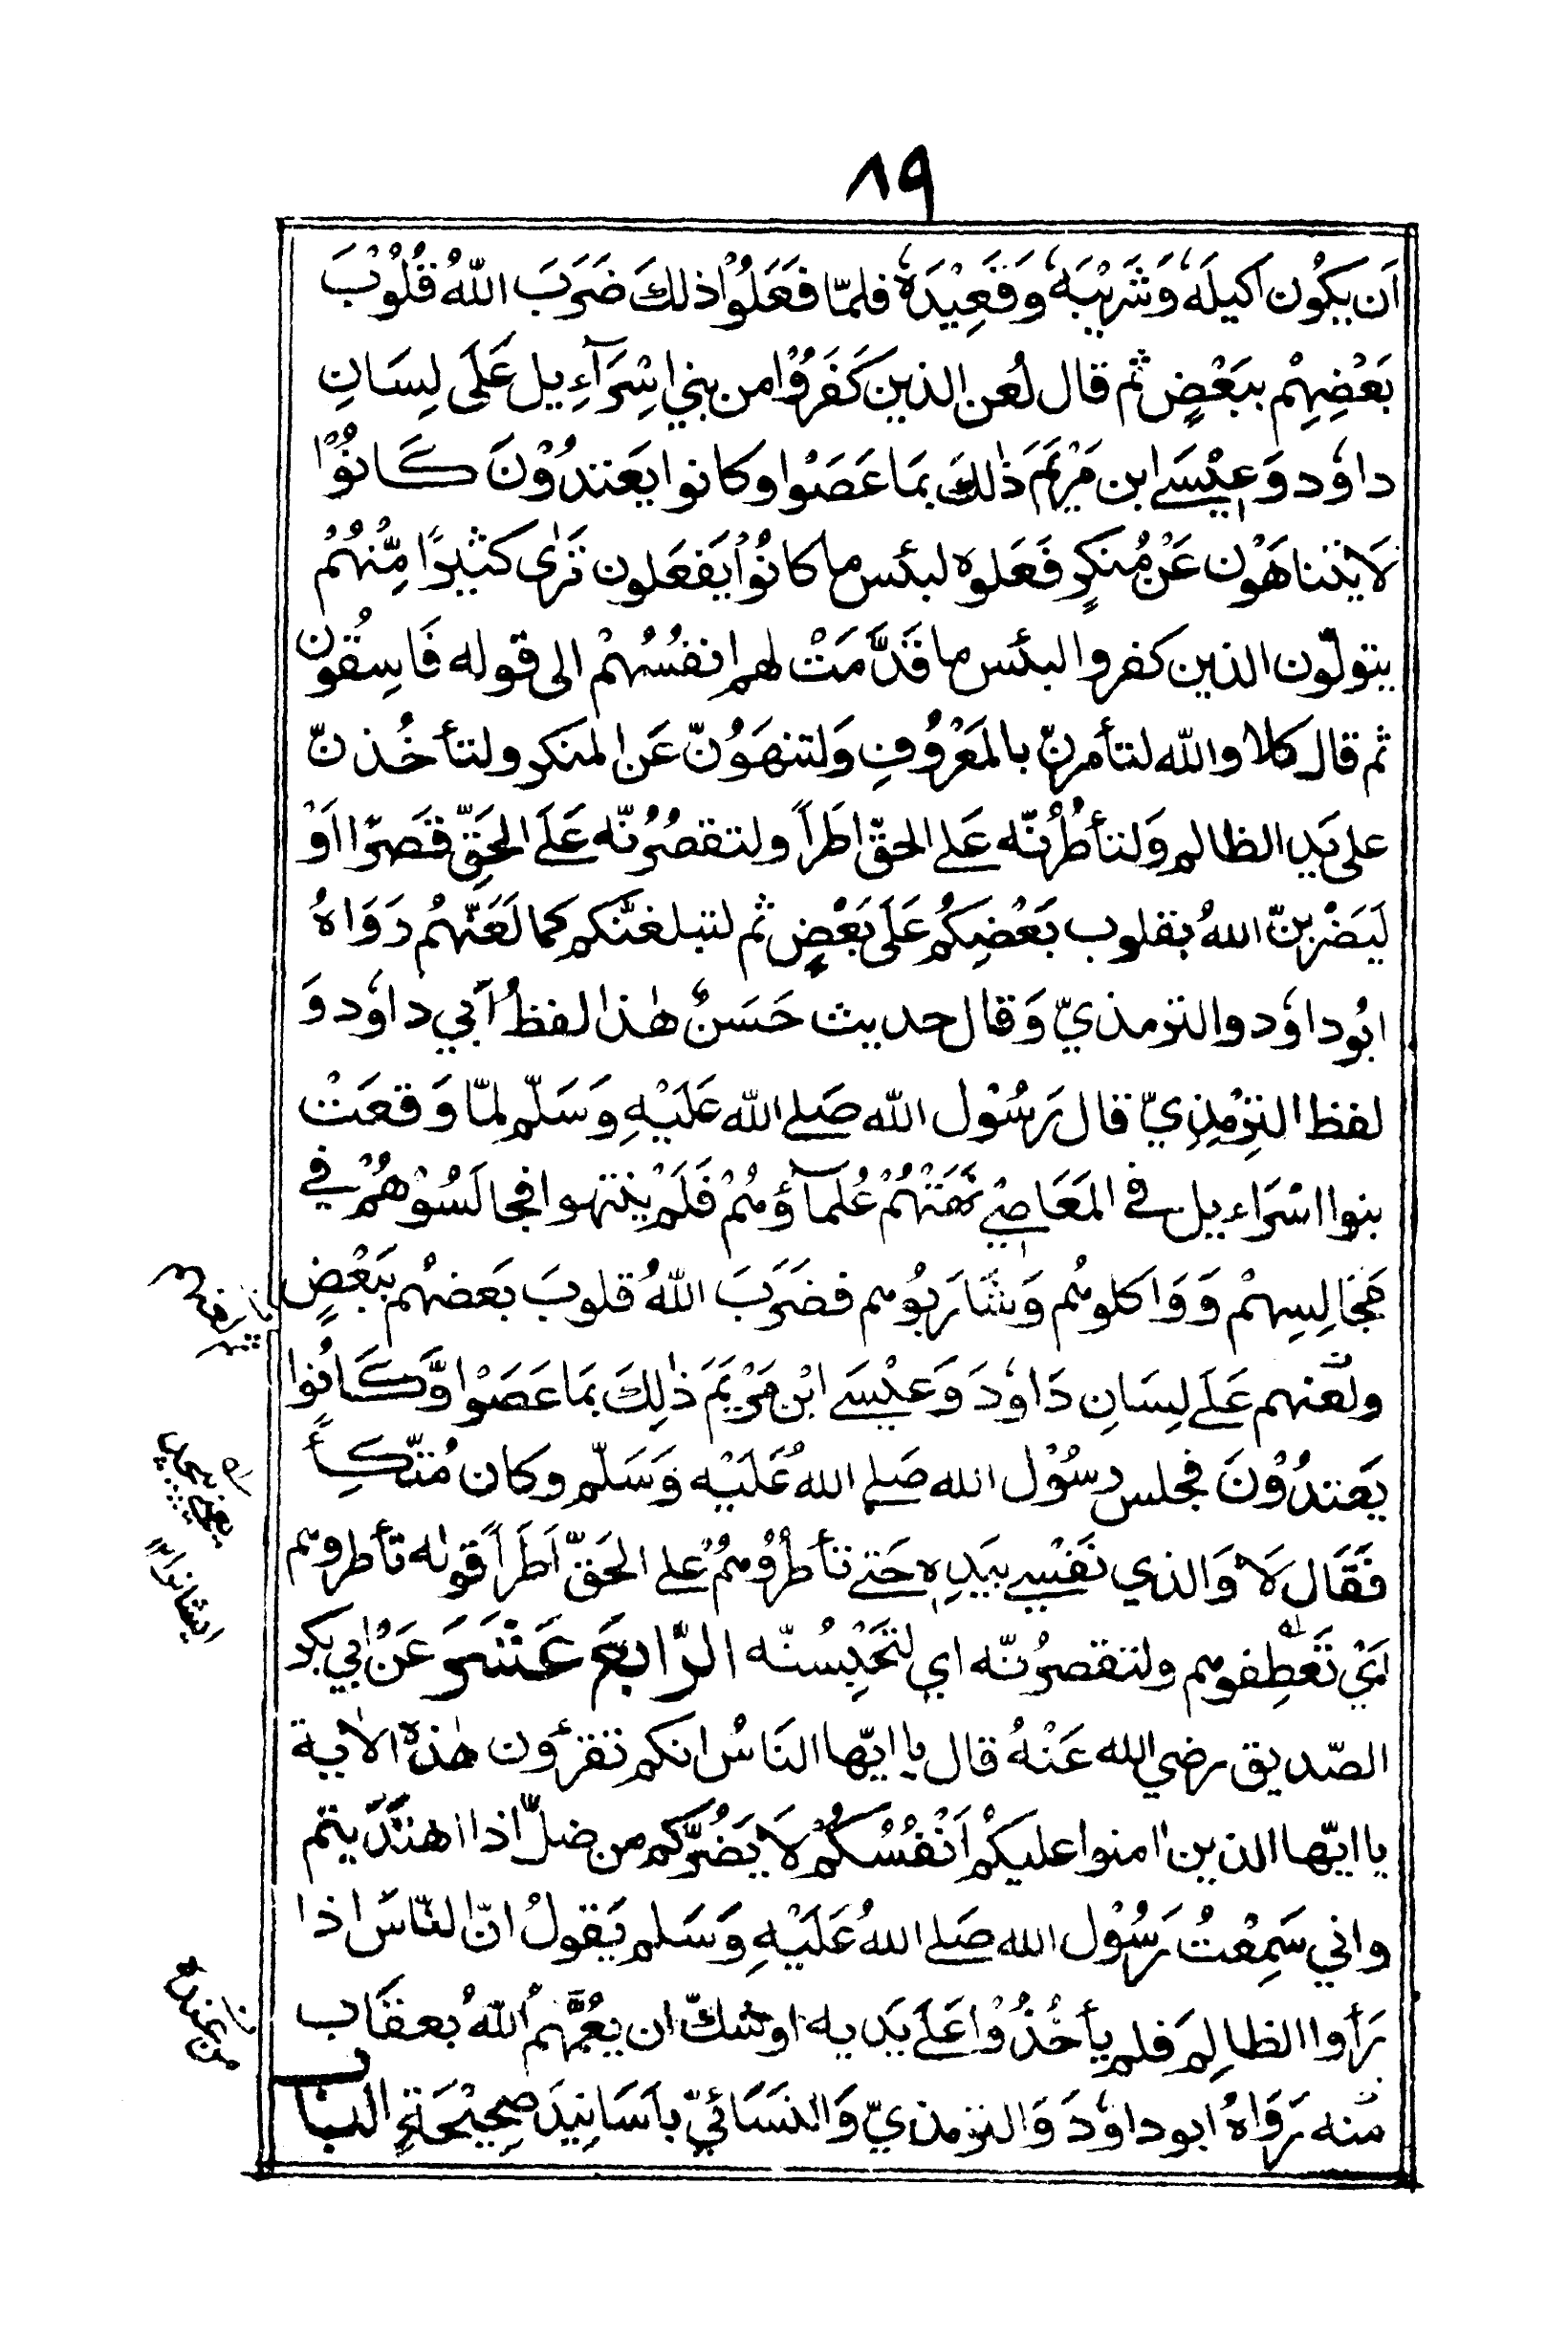 ٨٩
اَن يكُون اكيلَهٗ وَشَرِيْبَهٗ وَقَعِيْدَهٗ فلمّا فَعَلُوْا ذلكَ ضَرَبَ اللّٰهُ قُلُوْبَ
بَعْضِهِمْ ببَعْضٍ ثم قال لُعن الذين كَفَرُوْا من بني اِسْرَآءِيل عَلَى لِسَانِ
داوٗد وَعِيْسَے ابن مَرْيَمَ ذٰلكَ بمَا عَصَوْا وكانوا يَعتدُوْنَ كَانُوْا
لَا يَتناهَوْن عَنْ مُنكَرٍ فَعَلوه لبئس ما كانُوْا يَفعَلون تَرٰى كثيرًا مِّنْهُمْ
يتولّون الذين كفروا لبئس ما قَدَّمَتْ لهم انفُسُهُمْ الى قوله فَاسِقُون
ثم قال كلا واللّٰه لتأمرنّ بالمَعْرُوْفِ وَلتنهَوُنّ عَن المنكر ولتأخُذنّ
على يَدِ الظالم وَلتأطُرُنّه عَلے الحقّ اطَراً ولتقصُرُنّه عَلَے الحَقِّ قَصرًا اَوْ
لَيَضْرِبنّ اللهُ بقلوب بَعْضِكُم عَلَى بَعْضٍ ثم لتبلغنّكم كما لَعَنَهُم رَوَاهُ
ابُو داوٗد والترمذيّ وَقال حديث حَسَنٌ هٰذا لفظُ اَبي داوٗد وَ
لفظ التِرْمِذِيّ قال رَسُوْل اللّٰه صَلے اللّٰه عَلَيْهِ وَسَلّم لمّا وَقعَتْ
بنوا اسْرَاءيل في المَعَاصِيْ نَهَتْهُمْ عُلمآؤهُمْ فَلَمْ يَنتهوا فجالَسُوْهُمْ في
مَجَالِسِهِمْ وَوَاكلوهُم وَشَارَبُوهم فضَرَبَ اللّٰهُ قلوبَ بَعضهُم ببَعْضٍ
ولَعنهم عَلَے لِسَانِ دَاوٗدَ وَعِيْسَے ابْن مَرْيَمَ ذٰلِكَ بمَا عَصَوْا وَّكَانُوا
يَعتدُوْنَ فجلس رسُوْل الله صَلے اللهُ عَلَيْه وَسَلّم وكان مُتّكِأً
فَقَال لَا وَالذي نَفْسِے بيَدِهٖ حَتے تأطرُوهُمْ علے الحَقّ اَطَراً قولهٗ تأطروهم
اَيْ تَعْطِفوهم ولتقصرُنّه اي لتَحْبِسُنّه الرَّابعَ عَشَرَ عَنْ ابي بكر
الصّديق رضي الله عَنْهُ قال يا ايّها النَاسُ انكم تقرؤن هٰذهٖ الاٰية
يا ايّها الذين اٰمنوا عليكُم اَنْفُسَكُمْ لَا يَضُرّكم من ضلّ اذا اهتَدَيتم
واني سَمِعْتُ رَسُوْل الله صَلے اللهُ عَلَيْهِ وَسَلم يَقولُ انّ النّاسَ اذا
رَأوا الظالِمَ فلم يأخُذُوْا عَلَے يَديه اوشكّ ان يَعُمَّهُم اللّٰهُ بعقَاب
مّنه رَوَاهُ ابو داوٗدَ وَالترمذيّ وَالنسَائيّ باَسَانِيدَ صحِيْحَةٍ البَاب
من عنده